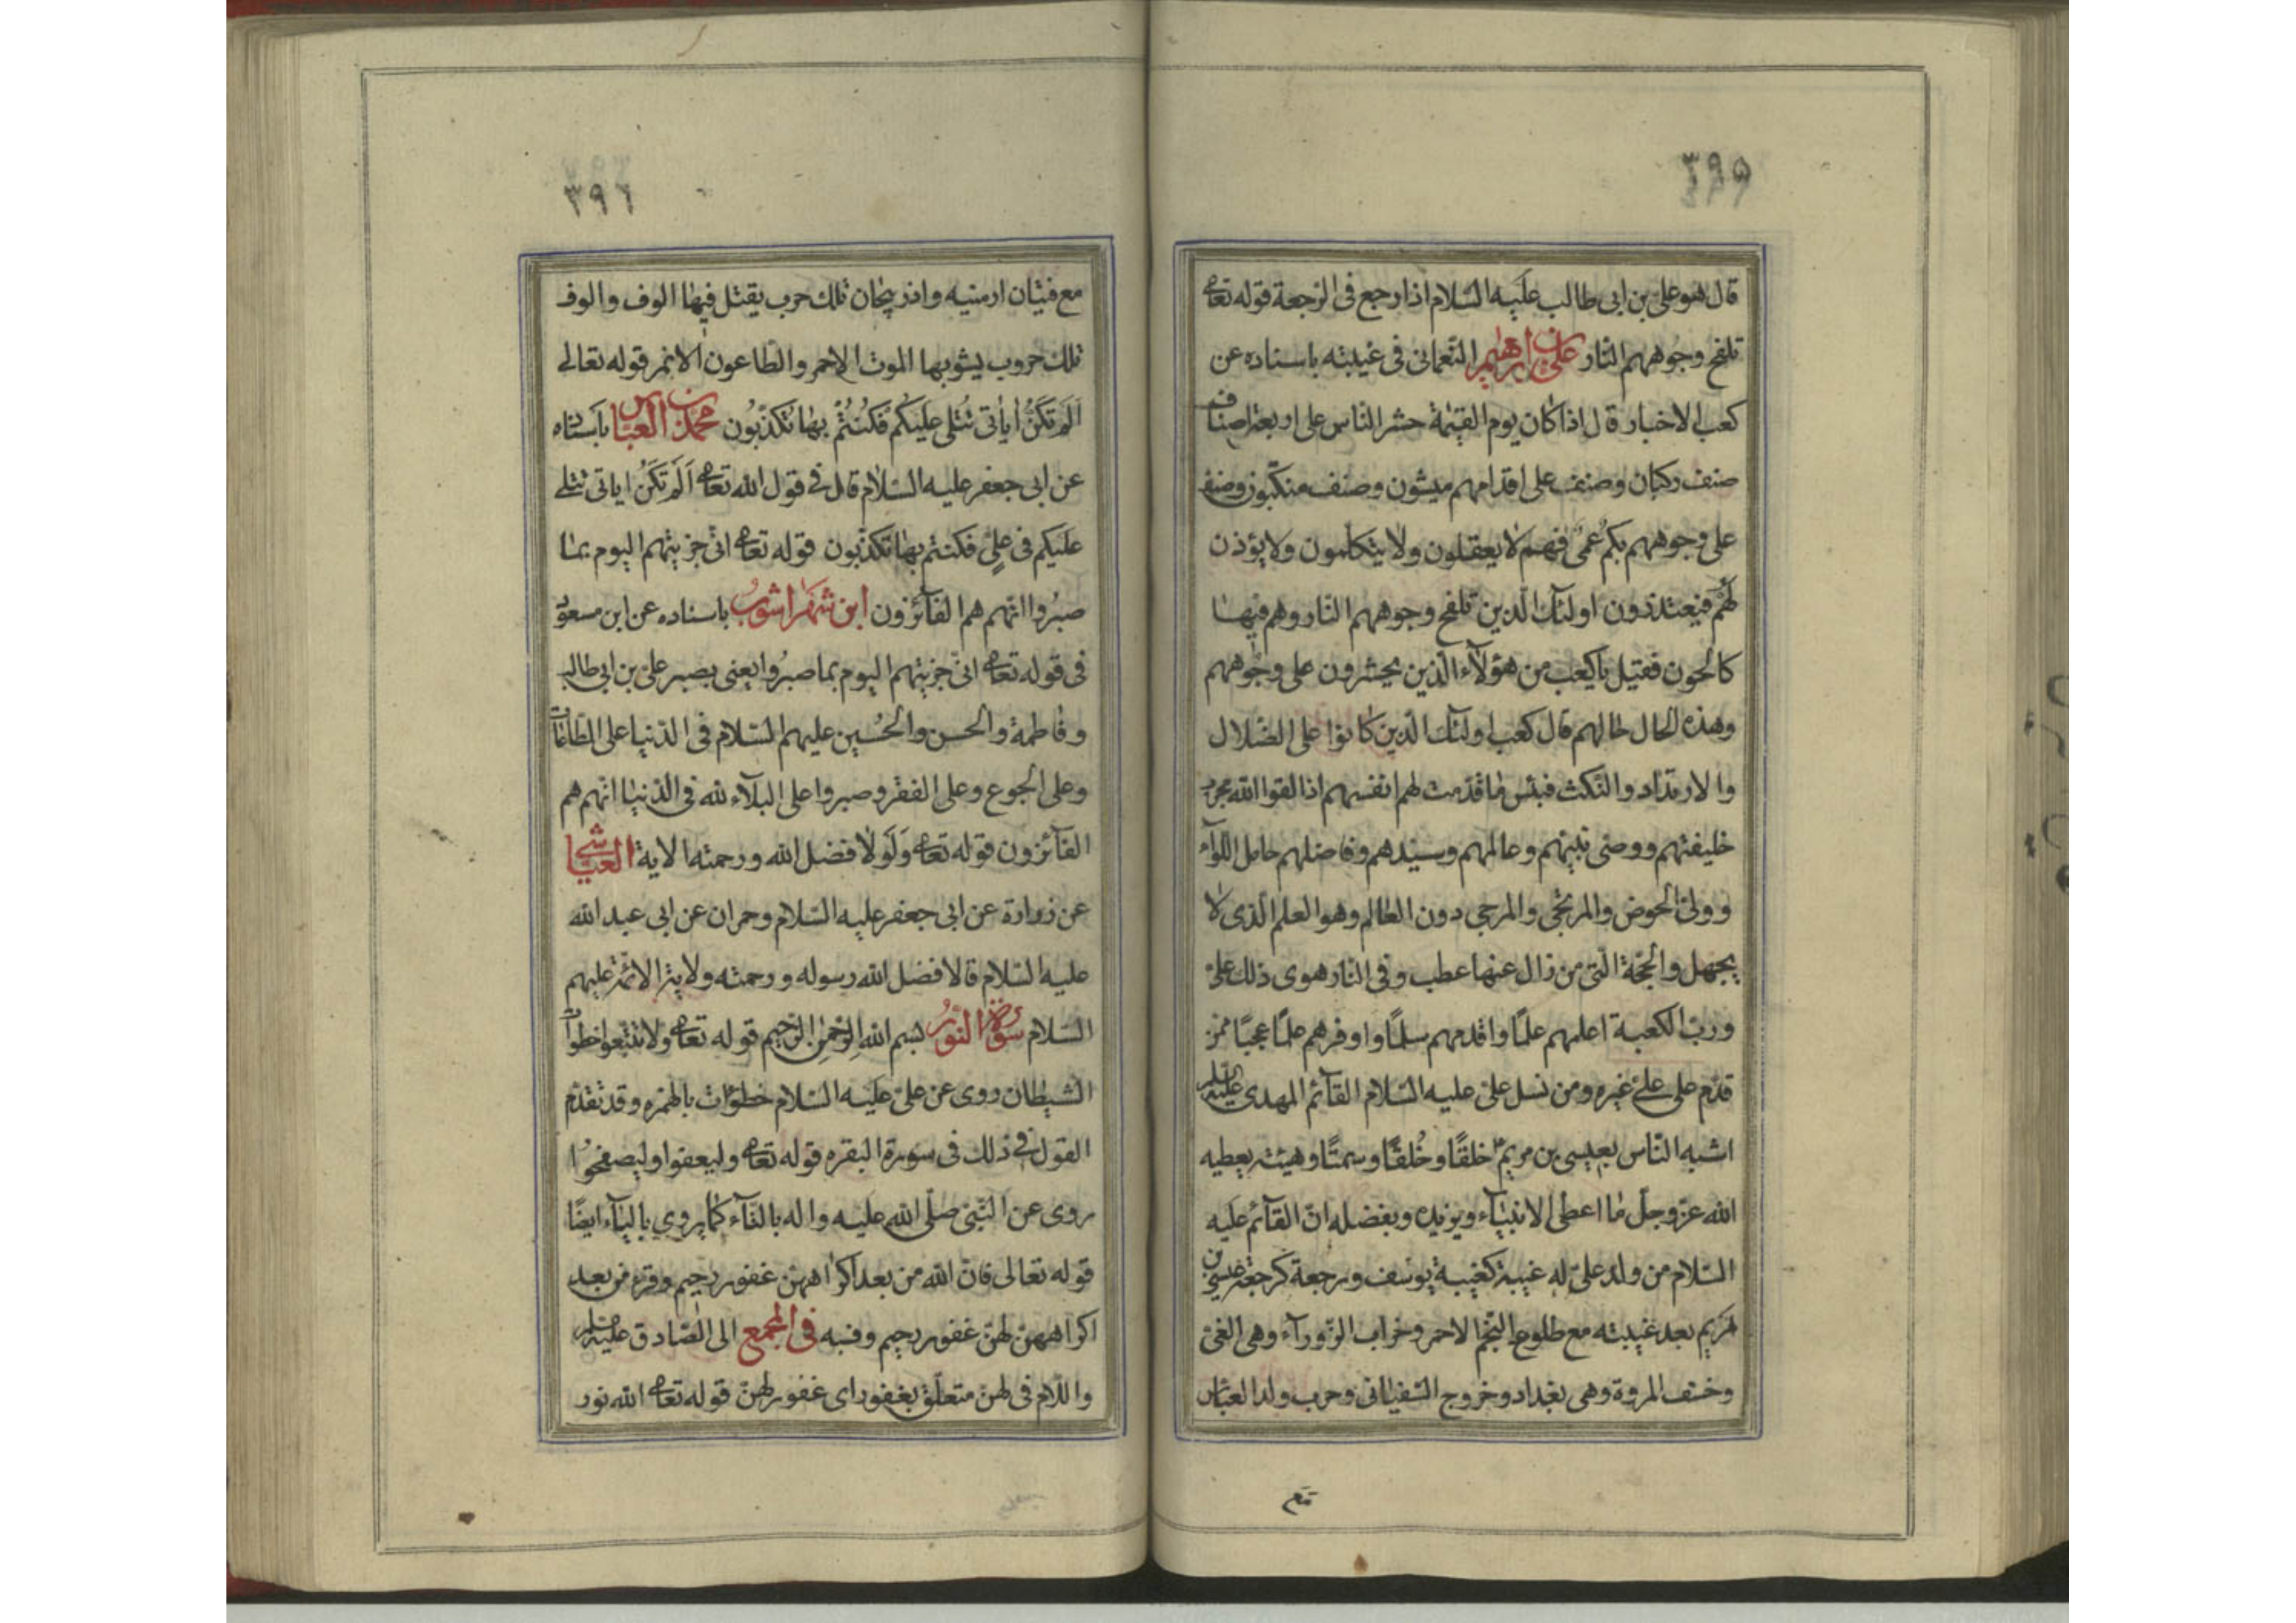 ٣٩٥
قال هو علي بن ابى طالب عليه السّلام اذا رجع فى الرّجعة قوله تعا
تلفح وجوههم النّار علي بن ابراهيم النّعمانى فى غيبته باسناده عن
كعب الاخبار قال اذا كان يوم القيمة حشر النّاس على اربعة اصناف
صنف ركبان وصنف على اقدامهم ميشون وصنف منكبّون وصنف
على وجوههم بكم عمى فهم لا يعقلون ولا يتكلمون ولا يؤذن
لهم فيعتذرون اولئك الّذين تلفح وجوههم النّار وهم فيها
كالحون فقيل يا كعب من هؤلاء الّذين يحشرون على وجوههم
وهذه الحال حالهم قال كعب اولئك الّذين كانوا على الضّلال
والارتداد والنّكث فبئس ما قدّمت لهم انفسهم اذا لقوا الله بحرب
خليفتهم ووصى نبيّهم وعالمهم وسيّدهم وفاضلهم حامل اللّواء
وولىّ الحوض والمرتجى والمرجى دون العالم وهو العلم الّذى لا
يجهل والحجّة الّتى من زال عنها عطب وفى النّار هوى ذلك علىّ
وربّ الكعبة اعلمهم علمًا واقدمهم سلمًا واوفرهم علمًا عجبًا ممّن
قدّم على علىّ غيره ومن نسل علىّ عليه السّلام القآئم المهدى عليه السلم
اشبه النّاس بعيسى بن مريم خلقًا وخُلقًا وسمتًا وهيئة يعطيه
الله عزّ وجلّ ما اعطى الانبيآء ويزيده ويفضله انّ القآئم عليه
السّلام من ولد علىّ له غيبة كغيبة يوسف ورجعة كرجعة عيسى بن
مريم بعد غيبته مع طلوع النّجم الاحمر وخراب الزّورآء وهى الغىّ
وخسف المروة وهى بغداد وخروج السّفيانى وحرب ولد العبّاس
مع
٣٩٦
مع فتيان ارمنيه واذربيجان تلك حرب يقتل فيها الوف والوف
تلك حروب يشوبها الموت الاحمر والطّاعون قوله تعالى
اَلَم تَكُن اٰياتى تُتلى عليكم فكُنتُم بها تُكذّبُون محمّد بن العبّاس باسناده
عن ابى جعفر عليه السّلام قال فى قول الله تعا اَلَم تَكُن اياتى تتلى
عليكم فى علىّ فكنتم بها تكذّبون قوله تعا انّى جزيتهم اليوم بما
صبروا انّهم هم الفآئزون ابن شهراشوب باسناده عن ابن مسعود
فى قوله تعا انّى جزيتهم اليوم بما صبروا يعنى بصبر علىّ بن ابى طالب
وفاطمة والحسن والحُسين عليهم السّلام فى الدّنيا على الطّاعات
وعلى الجوع وعلى الفقر وصبروا على البلآء لله فى الدّنيا انّهم هم
الفآئزون قوله تعا ولولا فضل الله ورحمته الاية العيّاشى
عن زرارة عن ابى جعفر عليه السّلام وحمران عن ابى عبد الله
عليه السّلام قالا فضل الله رسوله ورحمته ولاية الائمّة عليهم
السّلام سورة النّور بسم الله الرّحمٰن الرّحيم قوله تعا ولا تتّبعوا خطوات
الشّيطان روى عن علىّ عليه السّلام خطؤات بالهمزه وقد تقدّم
القول فى ذلك فى سورة البقره قوله تعا وليعفوا وليصفحوا
روى عن النّبىّ صلّى الله عليه واله بالتّآء كما يروى باليآء ايضًا
قوله تعالى فانّ الله من بعد اكراههنّ غفور رحيم وقرء من بعد
اكراههنّ لهنّ غفور رحيم ونسبه فى المجمع الى الصّادق عليه السلم
واللّام فى لهنّ متعلّق بغفور اى غفور لهنّ قوله تعا الله نور